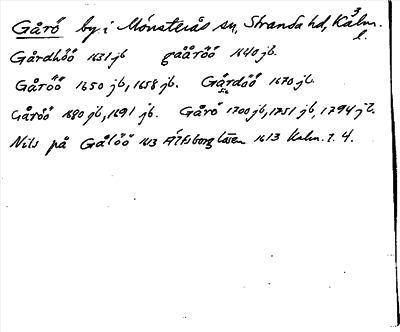 Gårö by i Mönsterås sn, Stranda hd, Kalm. l. 3
Gårdhöö 1631 jb gaåröö 1640 jb.
Gåröö 1650 jb, 1658 jb. Gårdöö 1670 jb.
Gåröö 1680 jb, 1691 jb. Gårö 1700 jb, 1751 jb, 1794 jb.
Nils på Gålöö 1613 Älfsborg lösen 1613 Kalm. l. 4.